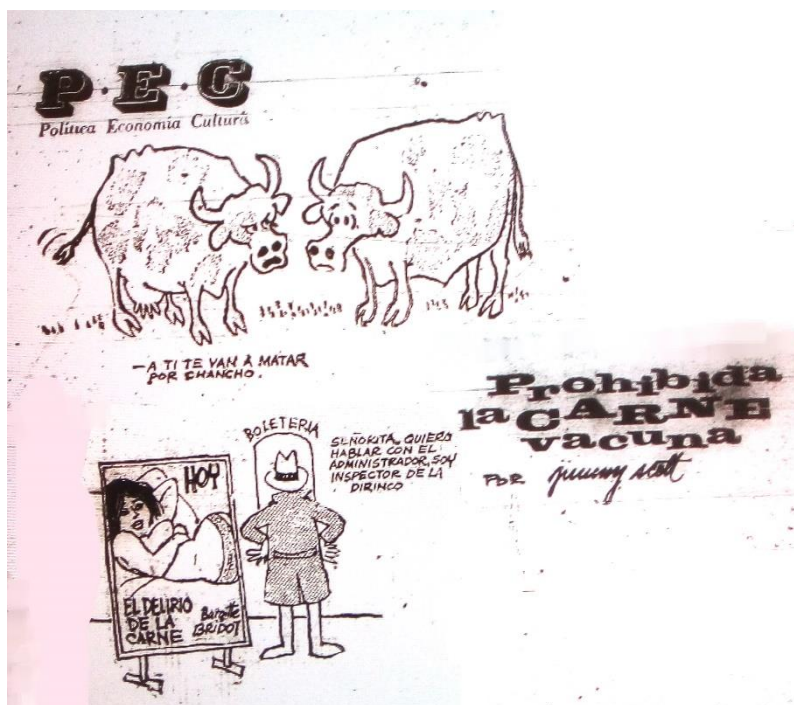 P·E·C
Política Economía Cultura
—A TI TE VAN A MATAR
POR CHANCHO.
Prohibida
la CARNE
vacuna
POR jimmy scott
BOLETERIA
SEÑORITA, QUIERO
HABLAR CON EL
ADMINISTRADOR, SOY
INSPECTOR DE LA
DIRINCO
HOY
EL DELIRIO
DE LA
CARNE
Brigitte
BRIDOT